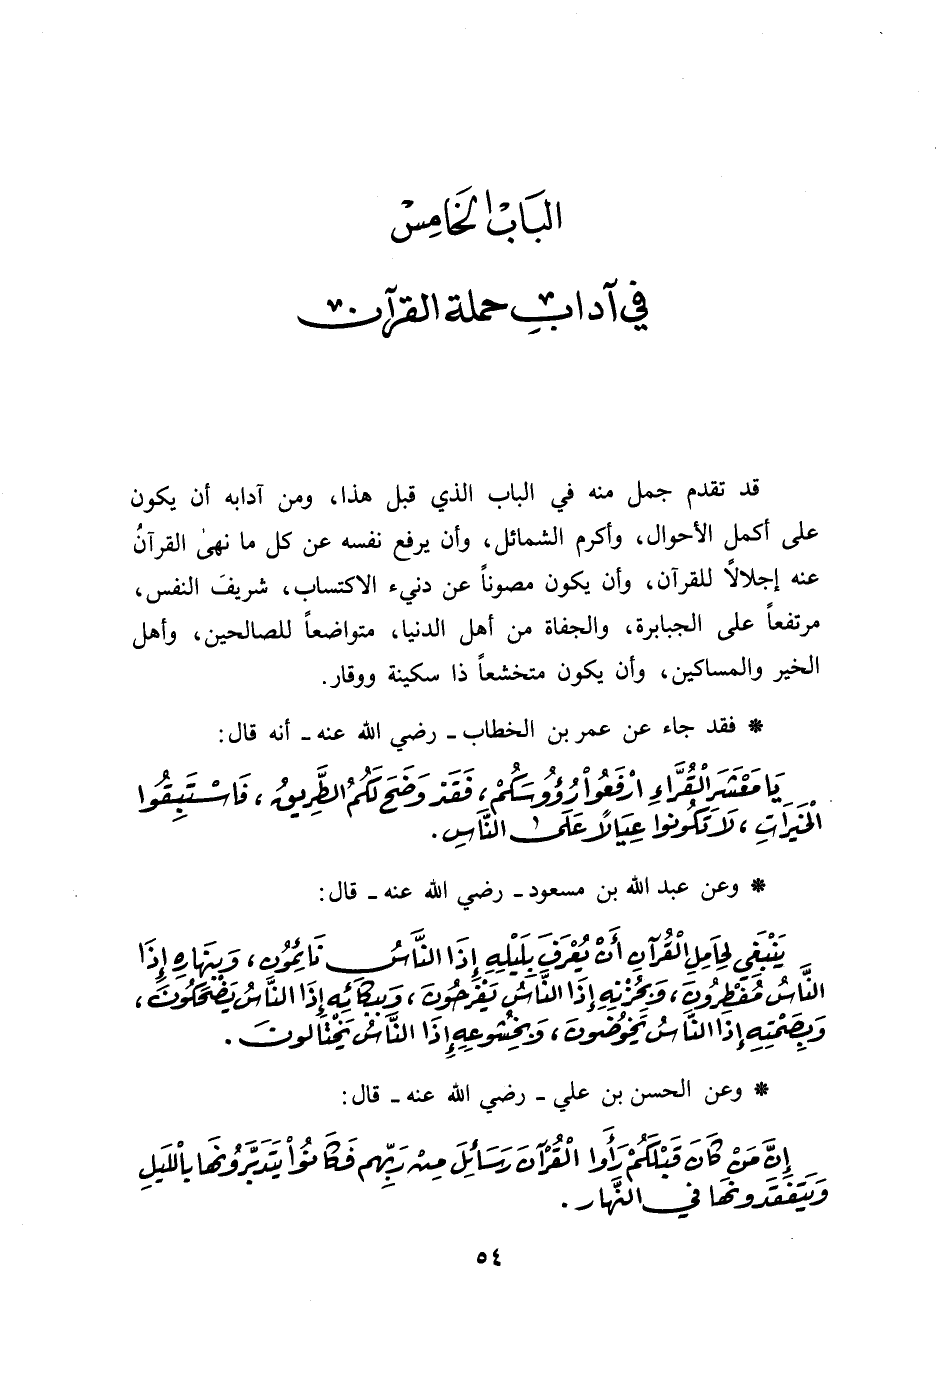 الباب الخامس
في آداب حملة القرآن
قد تقدم جمل منه في الباب الذي قبل هذا، ومن آدابه أن يكون
على أكمل الأحوال، وأكرم الشمائل، وأن يرفع نفسه عن كل ما نهىٰ القرآنُ
عنه إجلالاً للقرآن، وأن يكون مصوناً عن دنيء الاكتساب، شريفَ النفس،
مرتفعاً على الجبابرة، والجفاة من أهل الدنيا، متواضعاً للصالحين، وأهل
الخير والمساكين، وأن يكون متخشعاً ذا سكينة ووقار.
* فقد جاء عن عمر بن الخطاب ـ رضي الله عنه ـ أنه قال:
يَا مَعْشَرَ الْقُرَّاءِ ارْفَعُواْ رُؤُوسَكُمْ، فَقَدْ وَضَحَ لَكُمُ الطَّرِيقُ، فَاسْتَبِقُوا
الْخَيْرَاتِ، لَا تَكُونُوا عِيَالاً عَلَىٰ النَّاسِ.
* وعن عبد الله بن مسعود ـ رضي الله عنه ـ قال:
يَنْبَغِي لِحَامِلِ الْقُرْآنِ أَنْ يُعْرَفَ بِلَيْلِهِ إِذَا النَّاسُ نَائِمُونَ، وَبِنَهَارِهِ إِذَا
النَّاسُ مُفْطِرُونَ، وَبِحُزْنِهِ إِذَا النَّاسُ يَفْرَحُونَ، وَبِبُكَائِهِ إِذَا النَّاسُ يَضْحَكُونَ،
وَبِصَمْتِهِ إِذَا النَّاسُ يَخُوضُونَ، وَبِخُشُوعِهِ إِذَا النَّاسُ يَخْتَالُونَ.
* وعن الحسن بن علي ـ رضي الله عنه ـ قال:
إِنَّ مَنْ كَانَ قَبْلَكُمْ رَأَوا الْقُرْآنَ رَسَائِلَ مِنْ رَبِّهِم فَكَانُواْ يَتَدَبَّرُونَهَا بِالْلَيلِ
وَيَتَفَقَدُونَهَا فِي النَّهَارِ.
٥٤